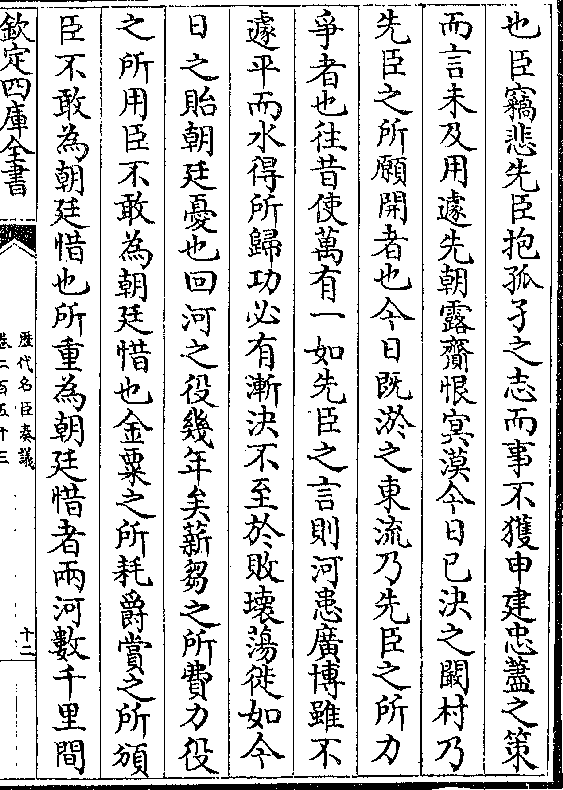 也臣竊悲先臣抱孤孑之志而事不獲申建忠藎之策
而言未及用遽先朝露齎恨㝠漠今日已決之闞村乃
先臣之所願開者也今日既淤之東流乃先臣之所力
爭者也往昔使萬有一如先臣之言則河患廣博雖不
遽平而水得所歸功必有漸決不至於敗壞蕩徙如今
日之貽朝廷憂也回河之役幾年矣薪芻之所費力役
之所用臣不敢為朝廷惜也金粟之所耗爵賞之所頒
臣不敢為朝廷惜也所重為朝廷惜者兩河數千里間
欽定四庫全書
歴代名臣奏議
卷二百五十三
十二